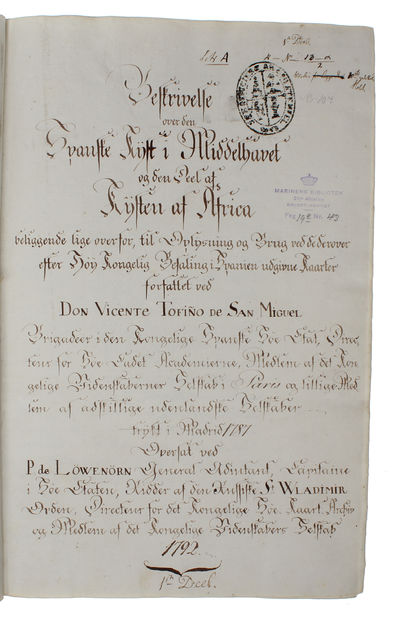 1ste Deel.
Litr A
Beskrivelse
over den
Spanske Kyst i Middelhavet
og den Deel af
Kysten af Africa
beliggende lige overfor, til Oplysning og Brug ved de derover
efter Høy Kongelig Befaling i Spanien udgivne Kaarter
forfattet ved
Don Vicente Tofiño de San Miguel
Brigadeer i den Kongelige Spanske Söe Etat, Direc-
teur for Söe Cadet Academierne, Medlem af det Kon-
gelige Videnskabernes Selskab i Paris og tillige Med-
lem af adskillige udenlandske Selskaber
trykt i Madrid 1787
Oversat ved
P. de Löwenörn General Adjutant, Capitaine
i Söe Etaten, Ridder af den Russiske St. Wladimir
Orden, Directeur for det Kongelige Söe-Kaart-Archiv
og Medlem af det Kongelige Videnskabers Selskab
1792.
1ste Deel.
MARINENS BIBLIOTEK